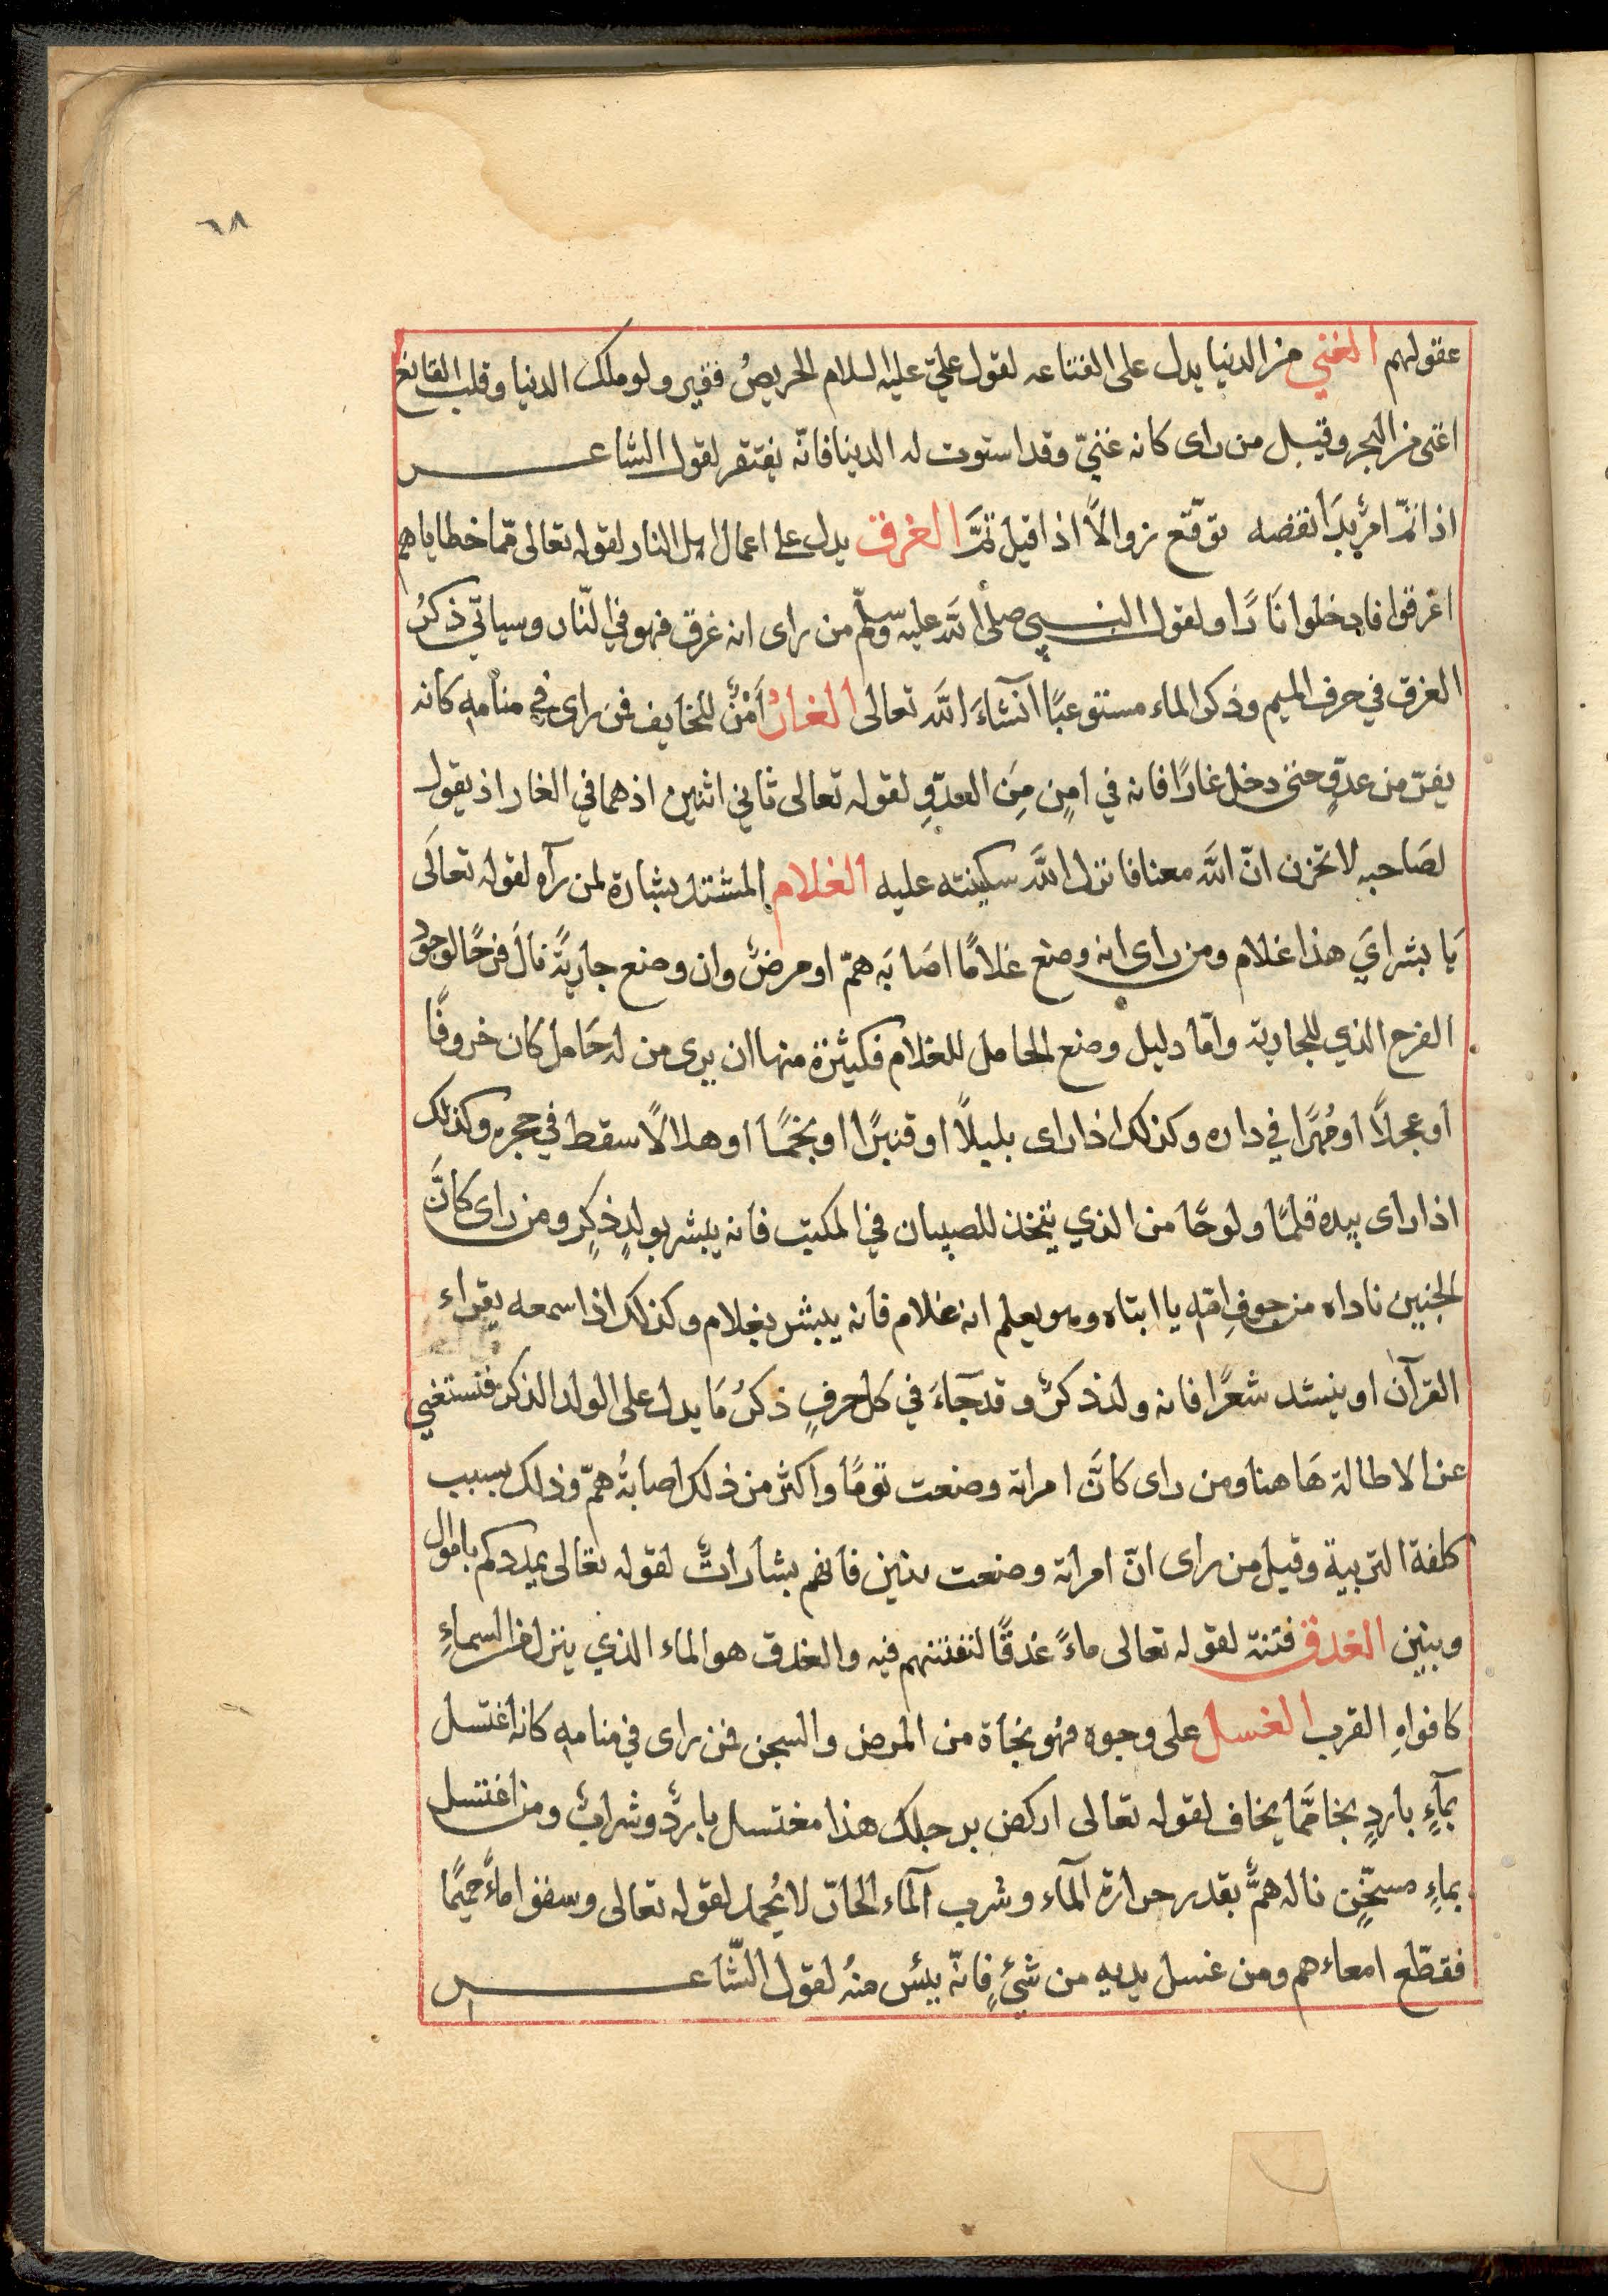 ٦٨
عقولهم الغني من الدنيا يدل على القناعه لقول عليّ عليه السلام الحريصُ فقير ولو ملك الدنيا وقلب القانع
اغنى من البحر وقيل من راى كانه غنيّ وقد استوت له الدنيا فانّه يفتقر لقول الشاعر
اذا تمّ امرٌ بدَا نقصه توقّع زوالًا اذا قيل تمَّ الغرق يدل على اعمال اهل النار لقوله تعالى ممّا خطاياهم
اغرقوا فادخلوا نَارًا ولقول النبي صلى اللَّه عليه وسلّم من راى انه غرق فهو في النّار وسياتي ذكرُ
الغرق في حرف الميم وذكر الماء مستوعبًا انشَاءَ اللَّه تعالى الغارُ اَمْنٌ للخايف فمن راى في منامهِ كانه
يفرّ من عدوٍّ حتى دخل غارًا فانه في امنٍ مِنَ العدوِّ لقوله تعالى ثاني اثنين اذ هما في الغار اذ يقول
لصَاحبهِ لا تحزن انّ اللَّه معنا فانزل اللَّه سكينته عليه الغلام المشتد بشارة لمن رآه لقوله تعالَى
يَا بشرايَ هذا غلام ومن راى انه وضع غلامًا اصَابَه همّ او مرضٌ وان وضع جاريَةً نالَ فرحًا لوجود
الفرح الذي للجارية وامّا دليل وضع الحامل للغلام فكثيرة منها ان يرى من له حَامل كان خروفًا
او عجلًا او مُهرًا في داره وكذلك اذا راى بلبلًا او قنبرًا او نجمًا او هلالًا سقط في حجره وكذلك
اذا راى بيده قلمًا ولوحًا من الذي يتخذ للصبيان في المكتب فانه يبشر بولدٍ ذكرٍ ومن راى كانَّ
الجنين ناداه من جوفِ امّهِ يا ابتاه وهو يعلم انه غلام فانه يبشر بغلام وكذلك اذا سمعه يقراء
القرآن او ينشد شعرًا فانه ولد ذكرٌ وقد جَآءَ في كل حرفٍ ذكرُ مَا يدل على الولد الذكر فنستغني
عن الاطالة هَاهنا ومن راى كانَّ امراته وضعت تومًا واكثر من ذلك اصابهُ همّ وذلك بسبب
كلفة التربية وقيل من راى انّ امراته وضعت بنين فانهم بشاراتٌ لقوله تعالى يمددكم باموال
وبنين الغدق فتنة لقوله تعالى ماءً غدقًا لنفتنهم فيه والغدق هو الماء الذي ينزل من السماءِ
كافواهِ القرب الغسل على وجوه فهُو نجاة من المرض والسجن فمن راى في منامهِ كانه اغتسل
بمآءٍ باردٍ نجا ممّا يخاف لقوله تعالى اركض برجلك هذا مغتسل باردٌ وشرابٌ ومن اغتسل
بماءٍ مسخّنٍ ناله همٌّ بقدر حرارة المآء وشرب المآء الحارّ لا يُحمد لقوله تعالى وسقوا ماءً حميمًا
فقطّع امعاءهم ومن غسل يديهِ من شيءٍ فانّه ييئس منهُ لقول الشّاعر